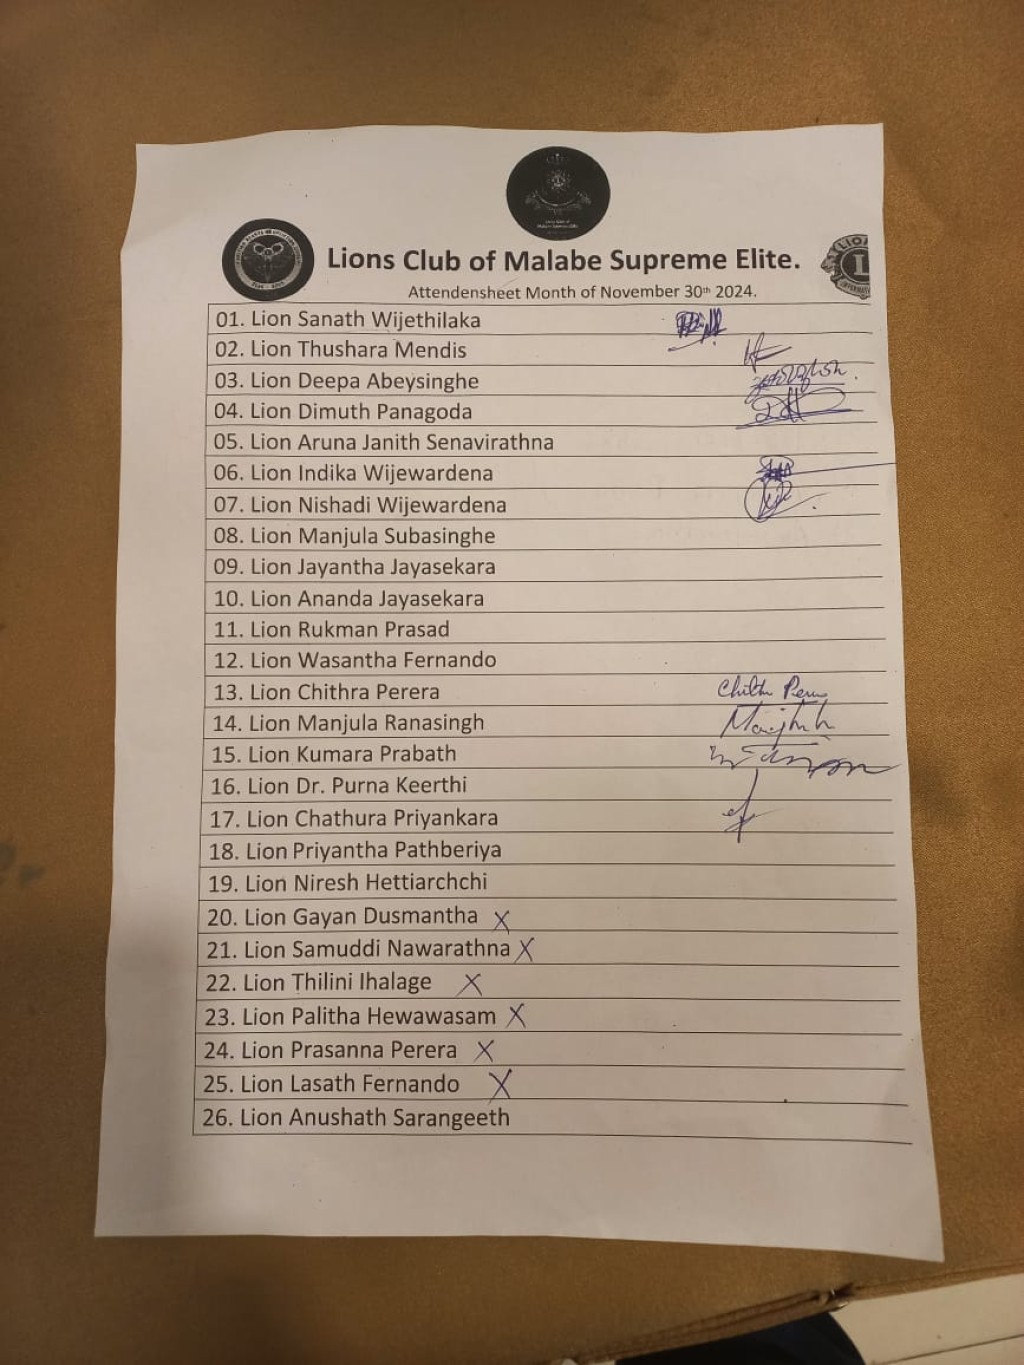 Lions Club of Malabe Supreme Elite.
Attendensheet Month of November 30th 2024.
01. Lion Sanath Wijethilaka
02. Lion Thushara Mendis
03. Lion Deepa Abeysinghe
04. Lion Dimuth Panagoda
05. Lion Aruna Janith Senavirathna
06. Lion Indika Wijewardena
07. Lion Nishadi Wijewardena
08. Lion Manjula Subasinghe
09. Lion Jayantha Jayasekara
10. Lion Ananda Jayasekara
11. Lion Rukman Prasad
12. Lion Wasantha Fernando
13. Lion Chithra Perera
14. Lion Manjula Ranasingh
15. Lion Kumara Prabath
16. Lion Dr. Purna Keerthi
17. Lion Chathura Priyankara
18. Lion Priyantha Pathberiya
19. Lion Niresh Hettiarchchi
20. Lion Gayan Dusmantha X
21. Lion Samuddi Nawarathna X
22. Lion Thilini Ihalage X
23. Lion Palitha Hewawasam X
24. Lion Prasanna Perera X
25. Lion Lasath Fernando X
26. Lion Anushath Sarangeeth